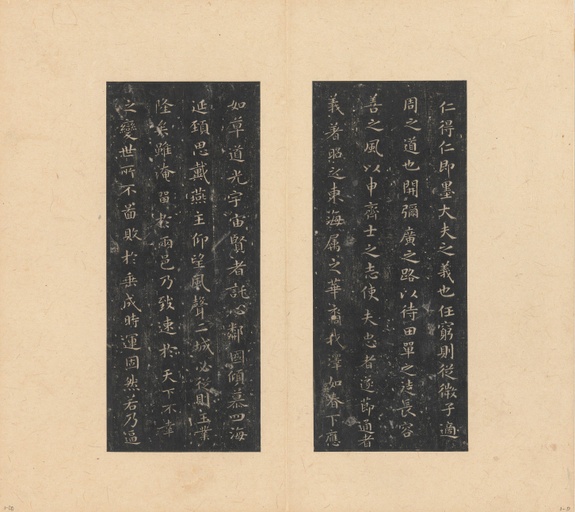 仁得仁即墨大夫之義也任窮則從微子適
周之道也開彌廣之路以待田單之徒長容
善之風以申齊士之志使夫忠者遂節通者
義著昭之東海属之華裔我澤如春下應
如草道光宇宙賢者託心鄰國傾慕四海
延頸思戴燕主仰望風聲二城必從則王業
隆矣雖淹留於兩邑乃致速於天下不幸
之變世所不啚敗於垂成時運固然若乃逼